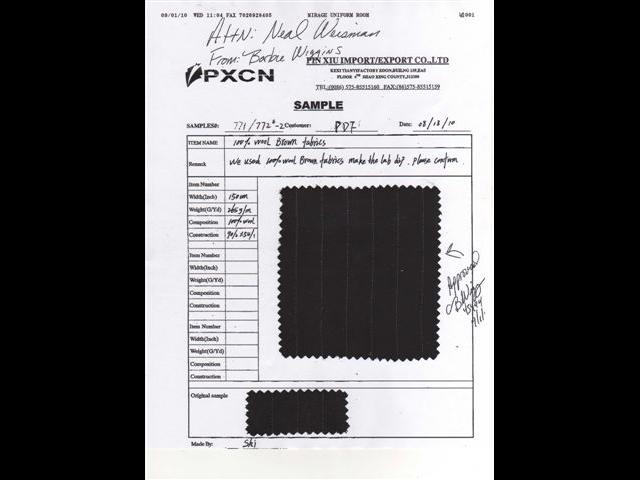 09/01/10 WED 11:04 FAX 7028928405 MIRAGE UNIFORM ROOM 001
Attn: Neal Weisman
From: Barbie Wiggins
PIN XIU IMPORT/EXPORT CO.,LTD
PXCN
TEL:(0086) 575-85515160 FAX:(86)575-85515159
SAMPLE
SAMPLES#: 771/772#-2 Customer: PDF Date: 08/13/10
ITEM NAME 100% wool Brown fabrics
Remark We used 100% wool Brown fabrics make the lab dip. please confirm.
Item Number
Width(Inch) 150cm
Weight(G/Yd) 265g/m
Composition 100% wool
Construction
Item Number
Width(Inch)
Weight(G/Yd)
Composition
Construction
Approved
Item Number
Width(Inch)
Weight(G/Yd)
Composition
Construction
Original sample
Made By: Ski